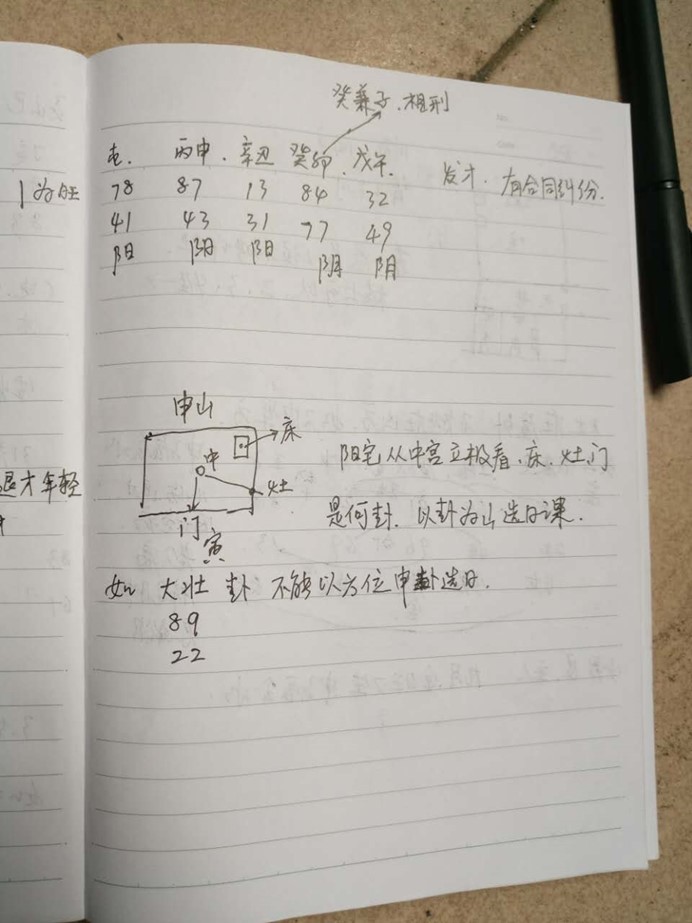 癸兼子.相刑
屯. 丙申. 辛丑 癸卯. 戊午. 发才. 有合同纠纷.
1为旺 78 87 13 84 32
41 43 31 77 49
阳 阳 阳 阴 阴
申山
床
中
灶
门
寅
阳宅从中宫立极看.床.灶门
是何卦. 以卦为山选日课.
退才年轻
如 大壮 卦 不能以方位申卦选日.
89
22